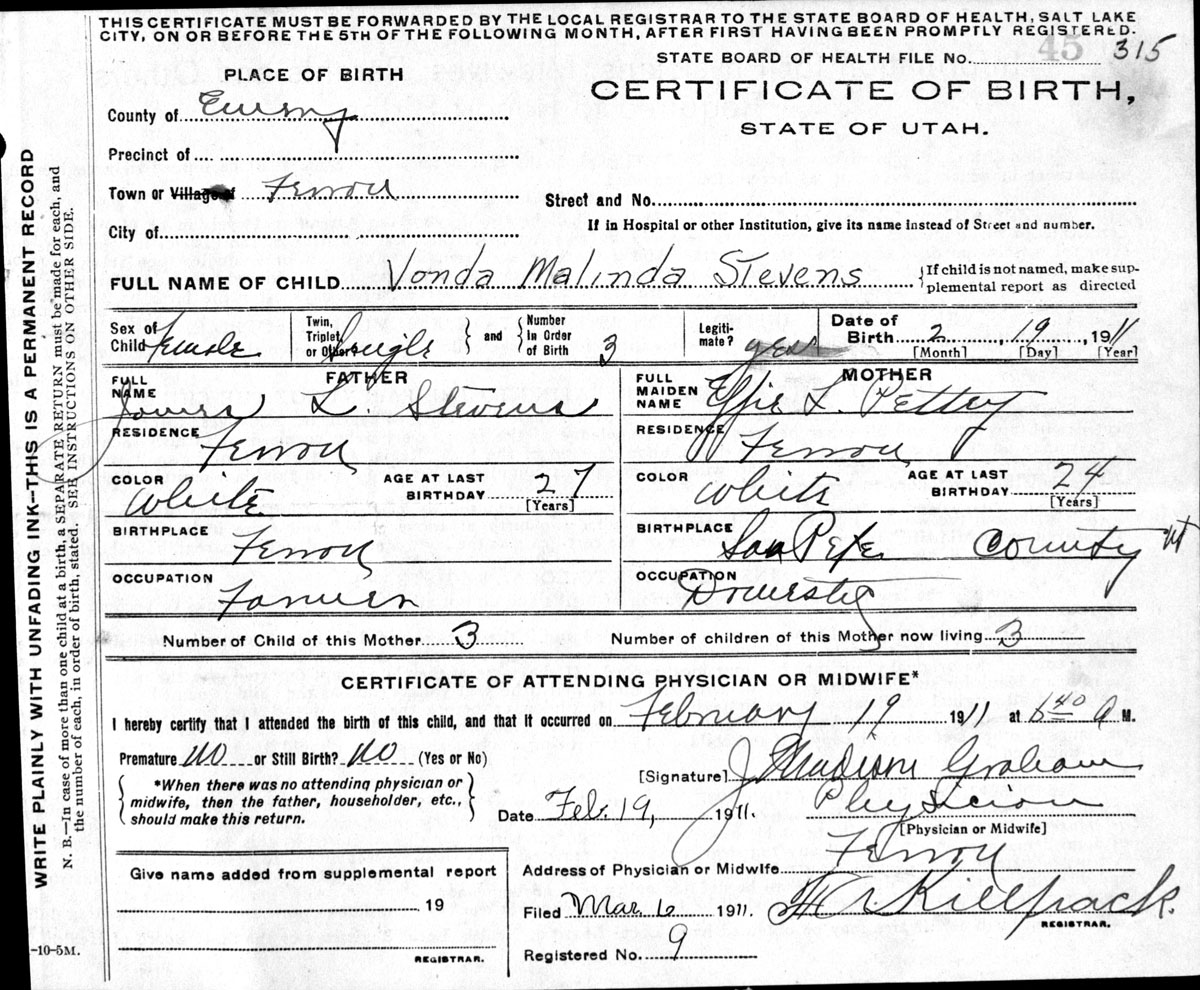 THIS CERTIFICATE MUST BE FORWARDED BY THE LOCAL REGISTRAR TO THE STATE BOARD OF HEALTH, SALT LAKE
CITY, ON OR BEFORE THE 5TH OF THE FOLLOWING MONTH, AFTER FIRST HAVING BEEN PROMPTLY REGISTERED.
45
STATE BOARD OF HEALTH FILE No. 315
PLACE OF BIRTH
CERTIFICATE OF BIRTH,
STATE OF UTAH.
County of Emery
Precinct of
Town or Village of Ferron
Street and No.
City of
If in Hospital or other Institution, give its name instead of Street and number.
FULL NAME OF CHILD Vonda Malinda Stevens
{If child is not named, make sup-
plemental report as directed
Sex of Child Female
Twin, Triplet or Other Single } and { Number In Order of Birth 3
Legiti-mate? yes
Date of Birth 2, 19, 1911
[Month] [Day] [Year]
FATHER
FULL NAME James L. Stevens
RESIDENCE Ferron
COLOR White
AGE AT LAST BIRTHDAY 27
[Years]
BIRTHPLACE Ferron
OCCUPATION Farmer
MOTHER
FULL MAIDEN NAME Effie L. Pettey
RESIDENCE Ferron
COLOR White
AGE AT LAST BIRTHDAY 24
[Years]
BIRTHPLACE San Pete County Ut
OCCUPATION Domestic
Number of Child of this Mother 3
Number of children of this Mother now living 3
CERTIFICATE OF ATTENDING PHYSICIAN OR MIDWIFE*
I hereby certify that I attended the birth of this child, and that it occurred on February 19 1911 at 6 40 A M.
Premature No or Still Birth? No (Yes or No)
{*When there was no attending physician or
midwife, then the father, householder, etc.,
should make this return.}
[Signature] J Madison Graham
Date Feb. 19, 1911. Physician
[Physician or Midwife]
Address of Physician or Midwife Ferron
Give name added from supplemental report
19
REGISTRAR.
Filed Mar 6 1911. Killpack.
REGISTRAR.
Registered No. 9
-10-5M.
WRITE PLAINLY WITH UNFADING INK—THIS IS A PERMANENT RECORD
N. B.—In case of more than one child at a birth, a SEPARATE RETURN must be made for each, and
the number of each, in order of birth, stated. SEE INSTRUCTION ON OTHER SIDE.